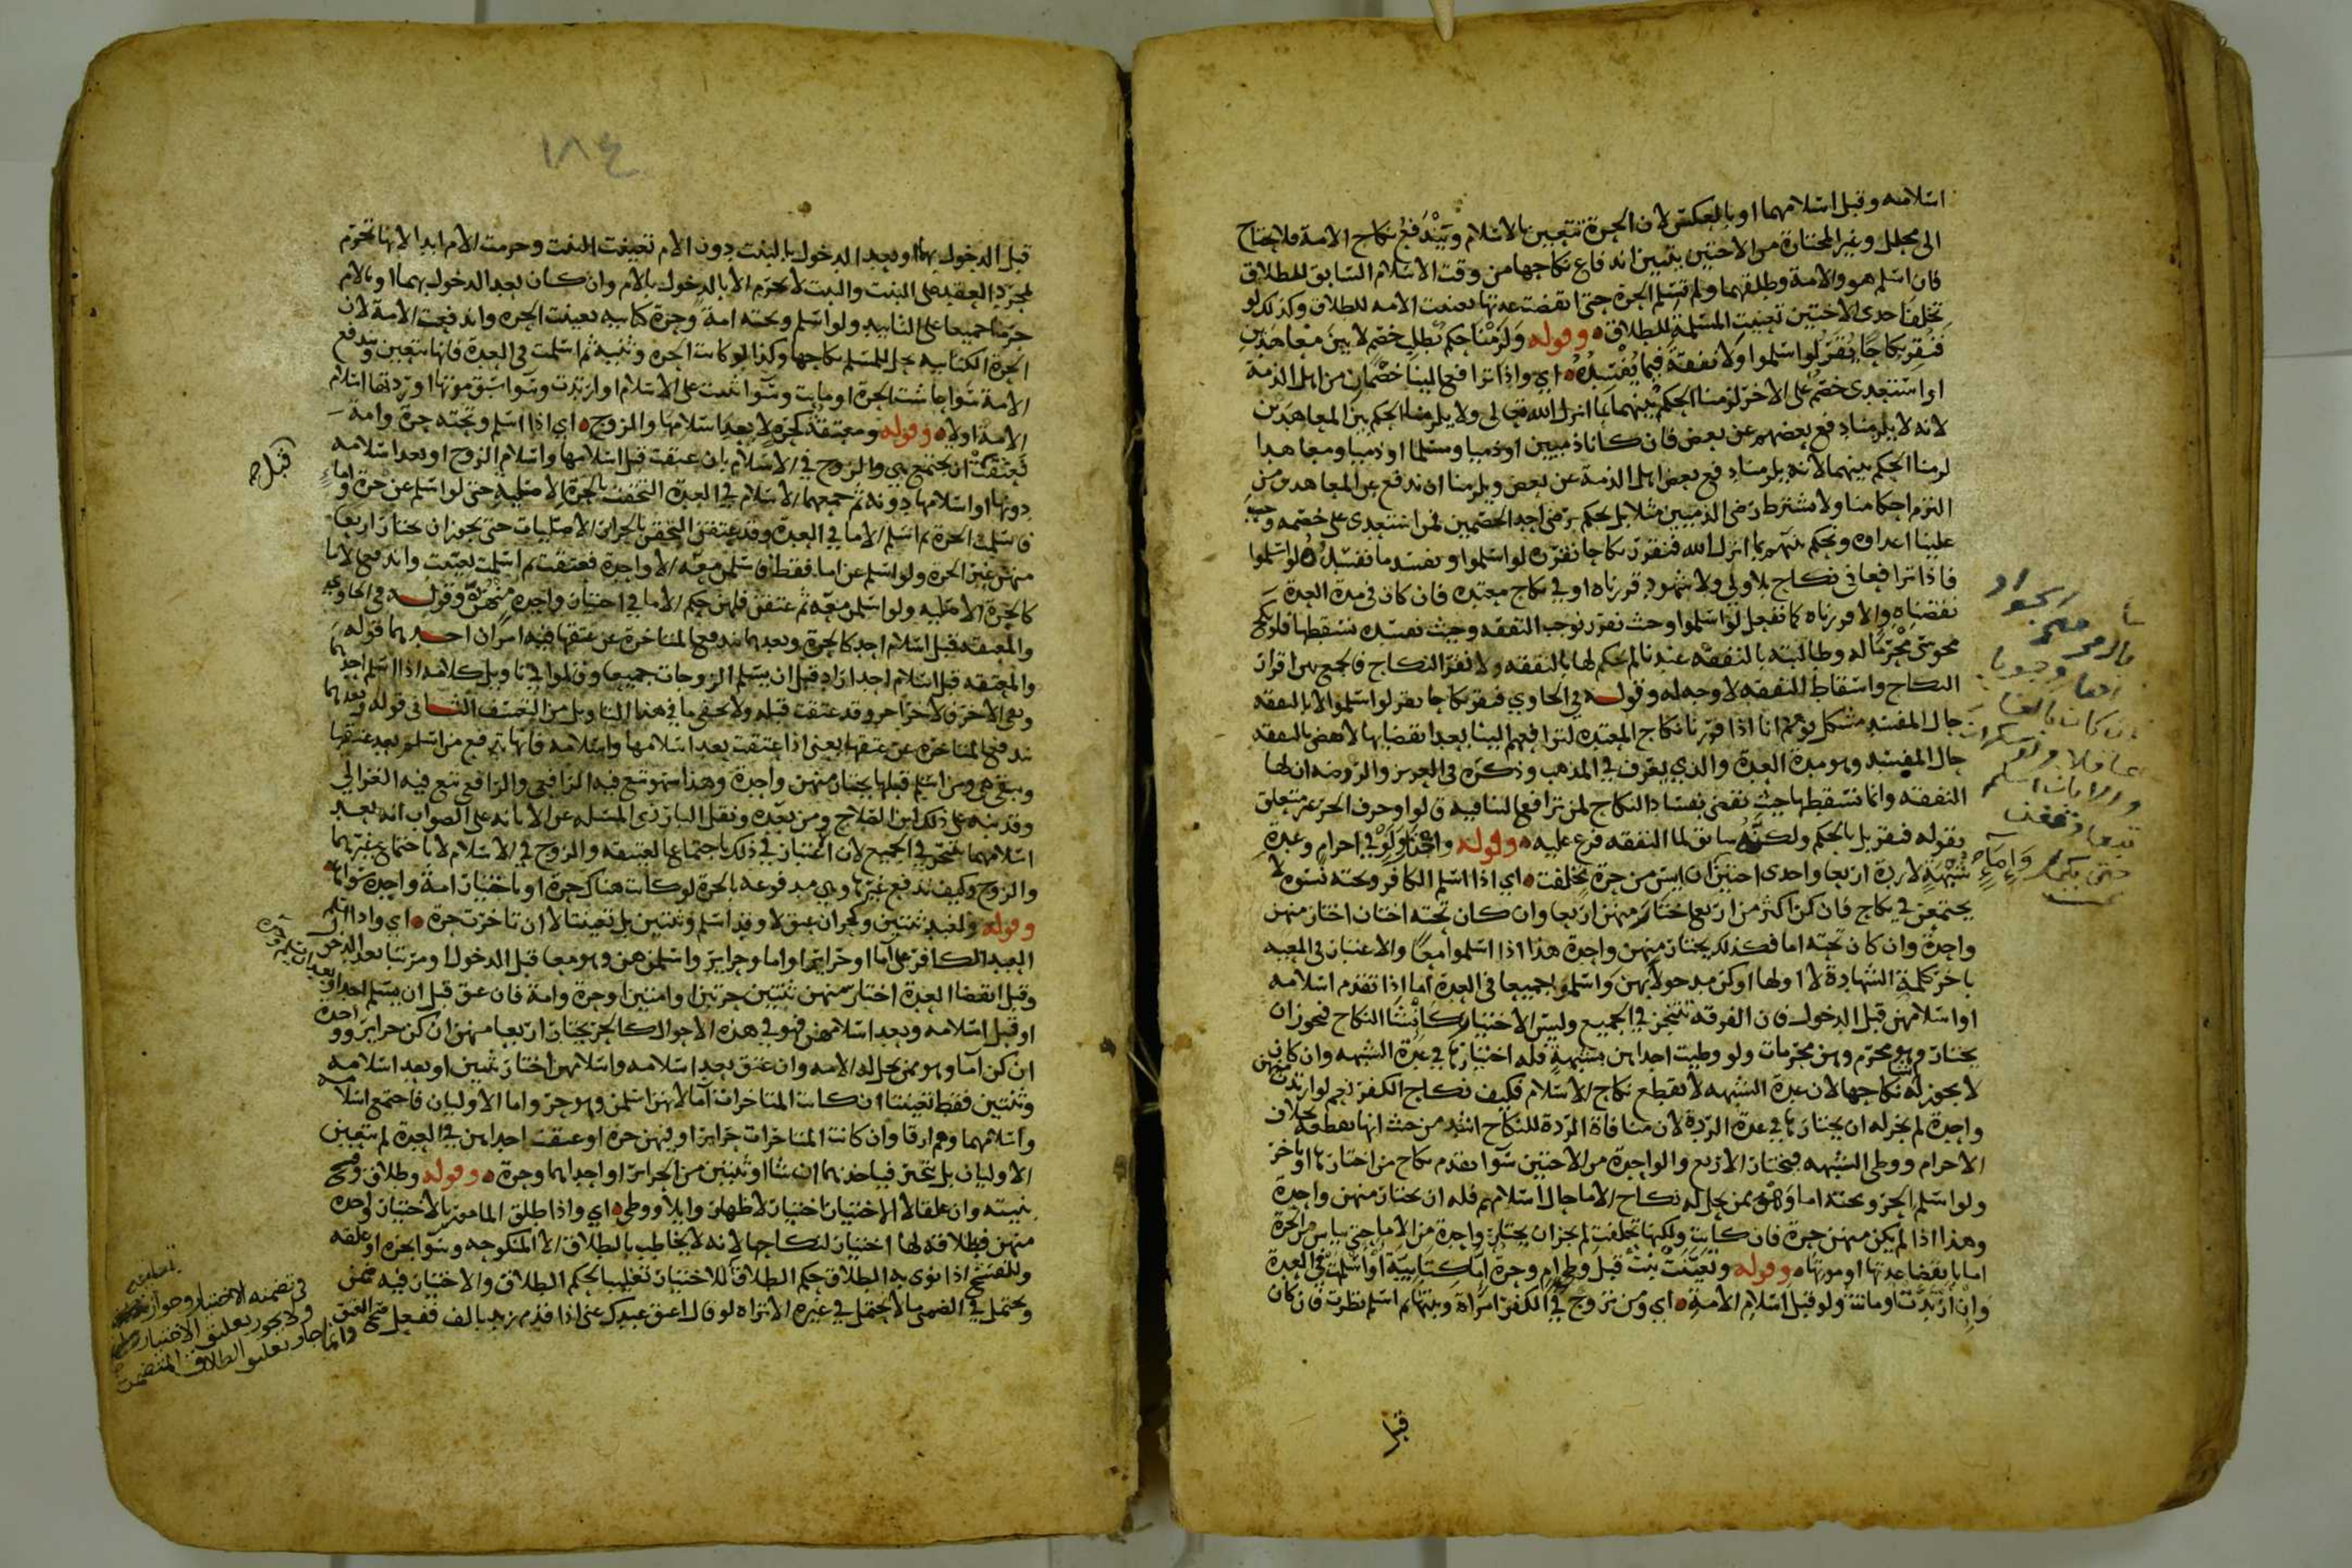 اسلامه وقبل اسلامهما او بالعكس لان الحرة تتعين بالاسلام ويندفع نكاح الامة فلا يحتاج
الى محلل وغير المختارة من الاختين يتبين اندفاع نكاحها من وقت الاسلام السابق للطلاق
فان اسلم هو والامة وطلقهما ولم تسلم الحرة حتى انقضت عدتها تعينت الامه للطلاق وكذلك لو
تخلف احدى الاختين تعينت المسلمة للطلاق وقوله ولزمنا حكم يبطل خصم لا بين معاهدين
فنقر نكاحا يقر لو اسلموا ولا نفقة فيما يفسده اي واذا ترافع الينا خصمان من اهل الذمة
او استعدى خصم على الاخر لزمنا الحكم بينهما بما انزل الله تعالى ولا يلزمنا الحكم بين المعاهدين
لانه لا يلزمنا دفع بعضهم عن بعض فان كانا ذميين او ذميا ومسلما او ذميا ومعاهدا
لزمنا الحكم بينهما لانه يلزمنا دفع بعض اهل الذمة عن بعض ويلزمنا ان ندفع عن المعاهد من
التزم احكامنا ولا نشترط رضى الذميين مثلا بل نحكم برضى احد الخصمين فمن استعدى على خصمه وجب
علينا اعداه ونحكم بينهم بما انزل الله فنقرر نكاحا نقره لو اسلموا ونفسد ما نفسده لو اسلموا
فاذا ترافعا في نكاح بلا ولي ولا شهود قررناه او في نكاح معتدة فان كان في مدة العدة
نقضناه والا قررناه كما نفعل لو اسلموا وحيث نقرر نوجب النفقه وحيث نفسده نسقطها فلو نكح
مجوسي محرما له وطالبته بالنفقة عندنا لم نحكم لها بالنفقه ولا نقر النكاح فالجمع بين اقرار
النكاح واسقاط النفقه لا وجه له وقوله في الحاوي فنقر نكاحا يقر لو اسلموا لا بالنفقه
حال المفسد مشكل يوهم انا اذا قررنا نكاح المعتده لترافعهم الينا بعد انقضائها لا نقضى بالنفقه
حال المفسد وهو مدة العدة والذي يعرف في المذهب وذكره في العزيز والروضه ان لها
النفقه وانما نسقطها حيث نقضى بفساد النكاح لمن ترافع الينا فيه قالوا وحرف الجر متعلق
بقوله فنقر بل بالحكم ولكنه سابق لما النفقه فرع عليه وقوله واختار ولو في احرام وعدة
شبهة لا ردة اربعا واحدى اختين ان ايس من حرة تخلفت اي اذا اسلم الكافر وتحته نسوه لا
يجتمعن في نكاح فان كن اكثر من اربع اختار منهن اربعا وان كان تحته اختان اختار منهن
واحدة وان كان تحته اما فكذلك يختار منهن واحدة هذا اذا اسلموا معا والاعتبار في المعيه
باخر كلمة الشهادة لا اولها او كن مدخولا بهن واسلموا جميعا في العدة اما اذا تقدم اسلامه
او اسلامهن قبل الدخول فان الفرقه تتنجز في الجميع وليس الاختيار كانشا النكاح فيجوز ان
يختار وهو محرم وهن محرمات ولو وطيت احداهن بشبهة فله اختيارها في عدة الشبهه وان كان
لا يجوز له نكاحها لان عدة الشبهه لا تقطع نكاح الاسلام فكيف نكاح الكفر نعم لو ارتدت منهن
واحدة لم يجز له ان يختارها في عدة الردة لان منافاة الردة للنكاح اشد من حيث انها تقطعه بخلاف
الاحرام ووطي الشبهه فيختار الاربع والواحدة من الاختين سوا تقدم نكاح من اختارها او تاخر
ولو اسلم الحر وتحته اما وهو ممن يحل له نكاح الاما حال اسلامهم فله ان يختار منهن واحدة
وهذا اذا لم يكن منهن حرة فان كانت ولكنها تخلفت لم يجز ان يختار واحدة من الاما حتى يياس من الحرة
اما بانقضا عدتها او موتها وقوله وتعينت بنت قبل وطي ام وحرة كتابية او اسلمت في العدة
وان ارتدت او ماتت ولو قبل اسلام الامة اي ومن تزوج في الكفر امراة وبنتها ثم اسلم نظرت فان كان
قبل
١٨٤
قبل الدخول بهما او بعد الدخول بالبنت دون الام تعينت البنت وحرمت الام ابدا لانها تحرم
بمجرد العقد على البنت والبنت لا تحرم الا بالدخول بالام وان كان بعد الدخول بهما او بالام
حرمتا جميعا على التابيد ولو اسلم وتحته امة وحرة كتابيه تعينت الحره واندفعت الامة لان
الحرة الكتابيه يحل للمسلم نكاحها وكذا لو كانت الحرة وثنيه ثم اسلمت في العدة فانها تتعين وتندفع
الامة سوا عاشت الحرة او ماتت وسوا ثبتت على الاسلام او ارتدت وسوا سبق موتها او ردتها اسلام
الامة اولا وقوله ومعتقة كحرة لا بعد اسلامها والزوج اي اذا اسلم وتحته حرة وامة
فعتقت ان يجتمع هي والزوج في الاسلام بان عتقت قبل اسلامها واسلام الزوج او بعد اسلامه
دونها او اسلامها دونه ثم جمعهما الاسلام في العدة التحقت بالحرة الاصلية حتى لو اسلم عن حرة واما
فاسلمت الحرة ثم اسلم الاما في العدة وقد عتقن التحقن بالحرائر الاصليات حتى يجوز ان يختار اربعا
منهن غير الحرة ولو اسلم عن اما فقط فاسلمن معه الا واحدة فعتقت ثم اسلمت تعينت واندفع الاما
كالحرة الاصليه ولو اسلمن معه ثم عتقن فلهن حكم الاما في اختيار واحدة منهن وقوله في الحاوي
والمعتقه قبل اسلام احد كالحرة وبعدهما تندفع المتاخرة عن عتقها فيه امران احدهما قوله
والمعتقه قبل اسلام احد اراد قبل ان يسلم الزوجات جميعا وقالوا في تاويل كلامه اذا اسلم احدهما
وبقى الاخر فالاخر احد وقد عتقت قبله ولا يخفى ما في هذا التاويل من التعسف الثاني قوله وبعدهما
تندفع المتاخرة عن عتقها يعني اذا عتقت بعد اسلامها واسلامه فانها تدفع من اسلم بعد عتقها
وتبقى هي ومن اسلم قبلها يختار منهن واحدة وهذا سهو تبع فيه الرافعي والرافعي تبع فيه الغزالي
وقد نبه على ذلك ابن الصلاح ومن بعده ونقل البارزي المسئله عن الابانه على الصواب انه بعد
اسلامهما تتخير في الجميع لان الاعتبار في ذلك باجتماع العتيقه والزوج في الاسلام لا باجتماع غيرهما
والزوج وكيف تدفع غيرها وهي مدفوعه بالحرة لو كانت هناك حرة او باختيار امة واحدة سواها
وقوله ولعبد ثنتين وكحر ان عتق لا وقد اسلم وثنتين بل تعينتا لا ان تاخرت حرة اي واذا اسلم
العبد الكافر على اما او حرائر او اما وحراير واسلمن هن وهو معا قبل الدخول او مرتبا بعد الدخول
وقبل انقضا العدة اختار منهن ثنتين حرتين او امتين او حرة وامة فان عتق قبل ان يسلم احد او بعد
او قبل اسلامه وبعد اسلامهن فهو في هذه الاحوال كالحر يختار اربعا منهن ان كن حراير وواحدة
ان كن اما وهو ممن يحل له الامه وان عتق بعد اسلامه واسلامهن اختار ثنتين او بعد اسلامه
وثنتين فقط تعينتا ان كانت المتاخرات اما لانهن اسلمن وهو حر واما الاوليان فاجتمع اسلامه
واسلامهما وهم ارقا وان كانت المتاخرات حراير او فيهن حرة او عتقت احداهن في العدة لم تتعين
الاوليان بل يتخير فياخذهما ان شا او ثنتين من الحراير او احداهما وحرة وقوله وطلاق وفسخ
بنيته وان علقا لا الاختيار اختيار لا ظهار وايلا ووطي اي واذا طلق المامور بالاختيار واحدة
منهن فطلاقه لها اختيار لنكاحها لانه لا يخاطب بالطلاق الا المنكوحه وسوا نجزه او علقه
وللفسخ اذا نوى به الطلاق حكم الطلاق للاختيار تغليبا لحكم الطلاق والاختيار فيه ضمني
ويحتمل في الضمني ما لا يحتمل في غيره الا تراه لو قال اعتق عبدك عني اذا قدم زيد بالف ففعل صح العتق